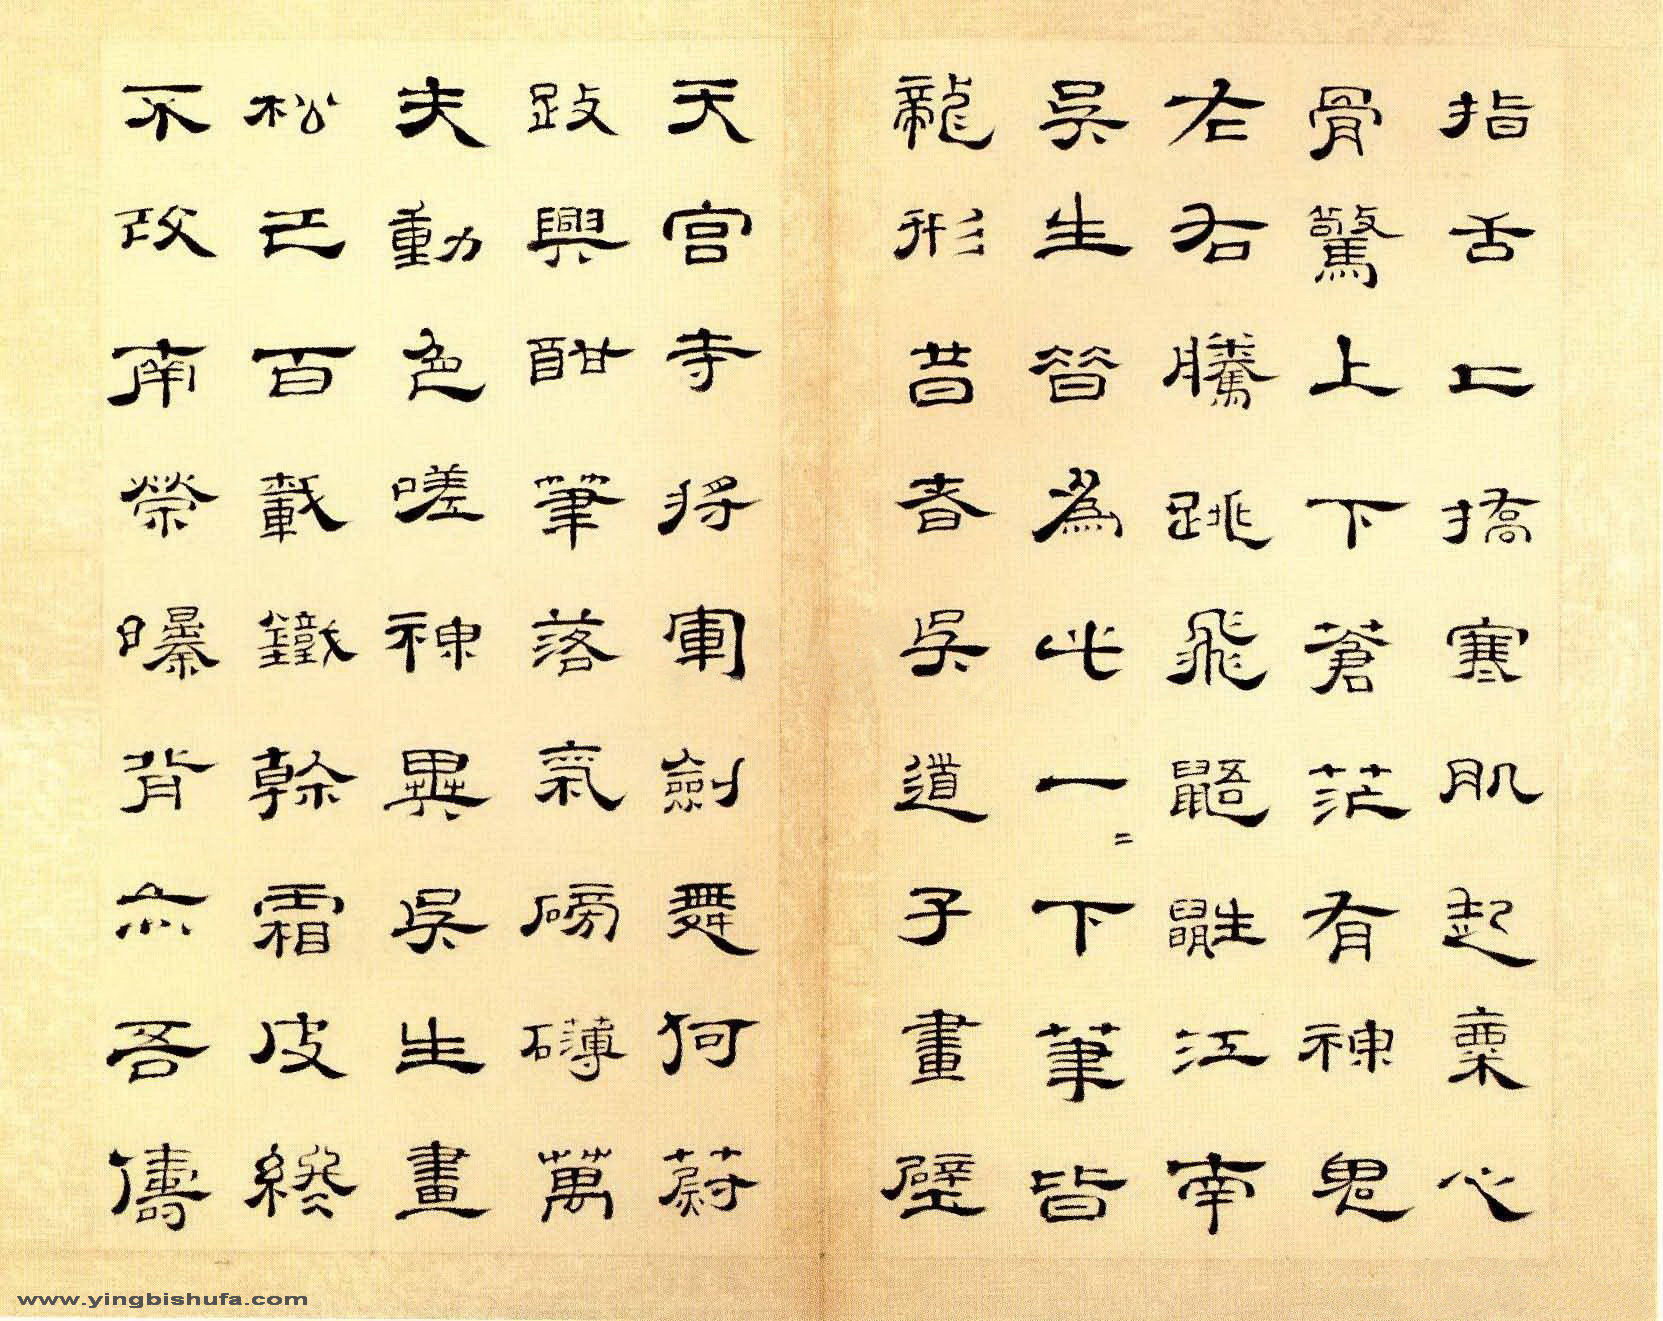 指舌上撟寒肌起粟心
骨驚上下蒼茫有神鬼
左右騰跳飛鼯鼪江南
吳生替為此一〻下筆皆
龍形昔者吳道子畫壁
天宮寺將軍劍舞何蔚
跂興酣筆落氣磅礴萬
夫動色嗟神異吳生畫
松已百載鐵幹霜皮終
不改南榮曝背亦吾儔
www.yingbishufa.com